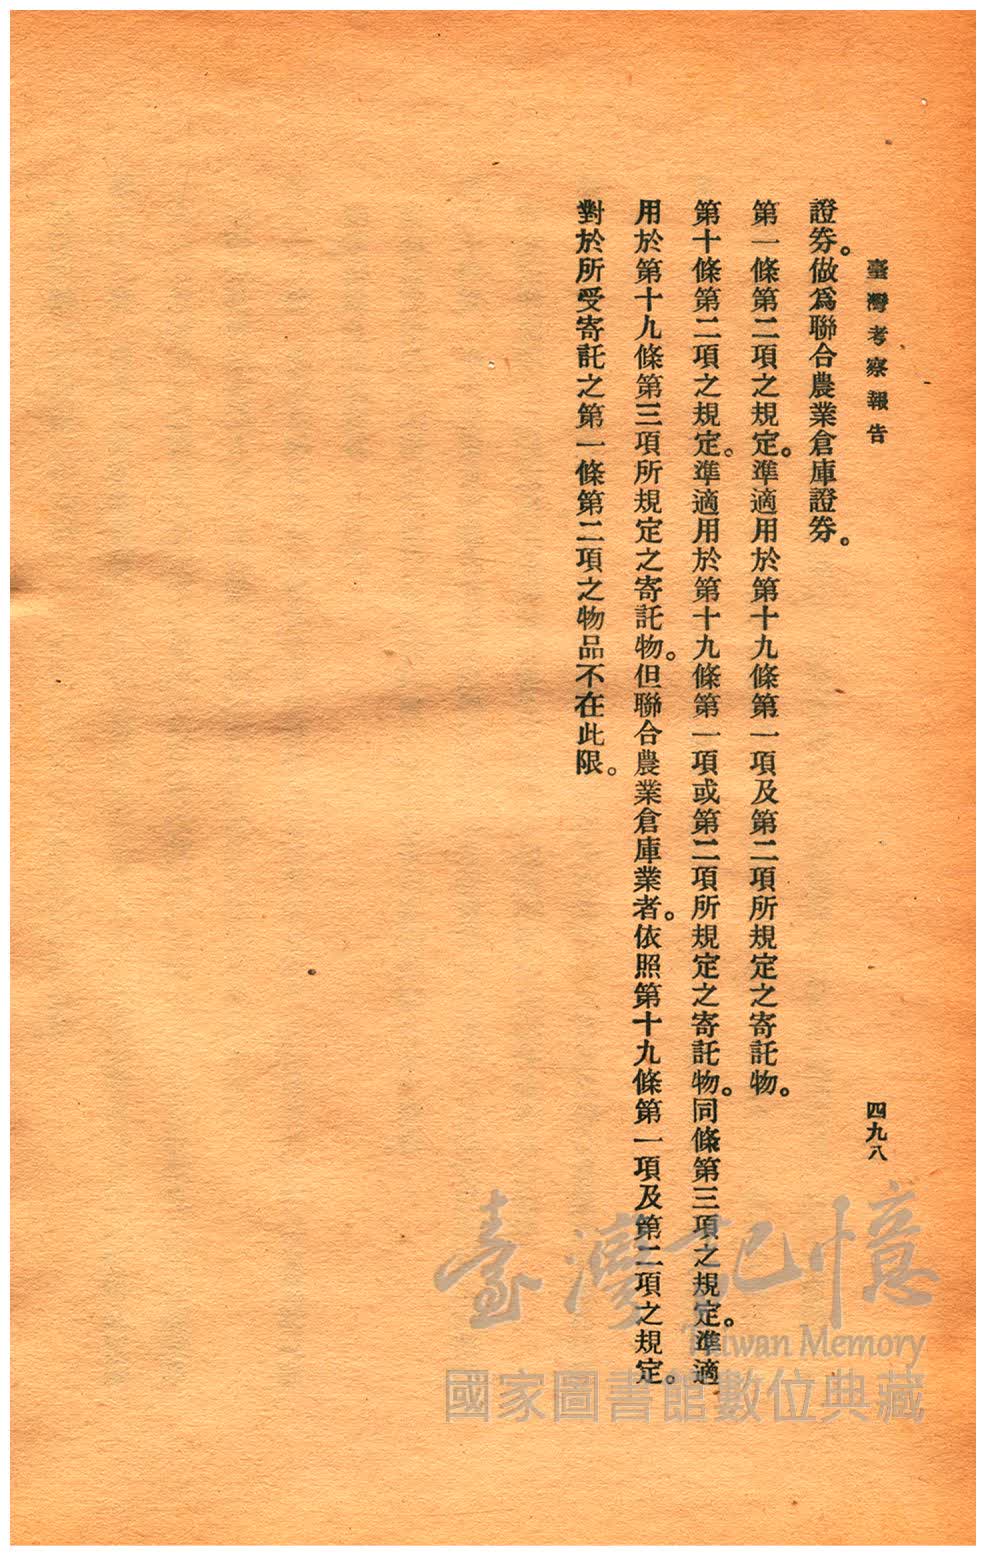 臺灣考察報告
四九八
證券。做爲聯合農業倉庫證券。
第一條第二項之規定。準適用於第十九條第一項及第二項所規定之寄託物。
第十條第二項之規定。準適用於第十九條第一項或第二項所規定之寄託物。同條第三項之規定。準適
用於第十九條第三項所規定之寄託物。但聯合農業倉庫業者。依照第十九條第一項及第二項之規定。
對於所受寄託之第一條第二項之物品不在此限。
臺灣記憶
Taiwan Memory
國家圖書館數位典藏